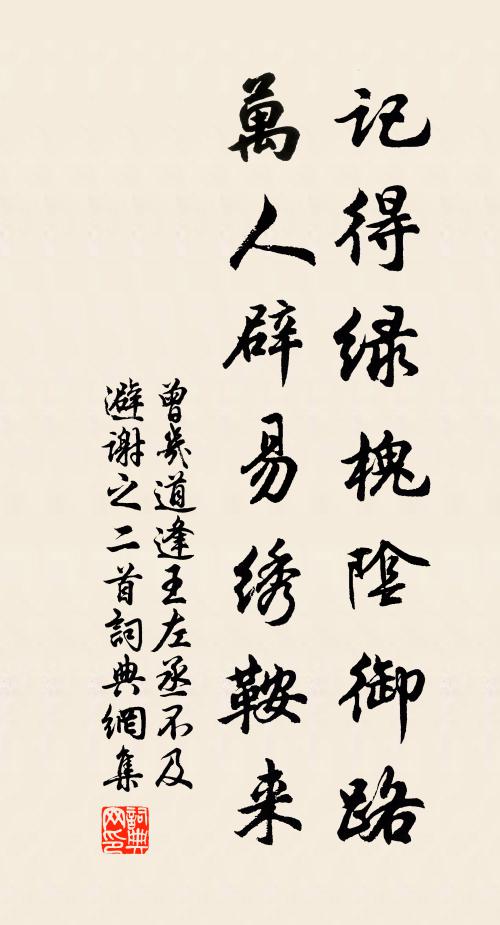 記得绿槐陰御路
萬人辟易绣鞍来
曾幾道逢王左丞不及
避谢之二首詞典網集
詞典网印